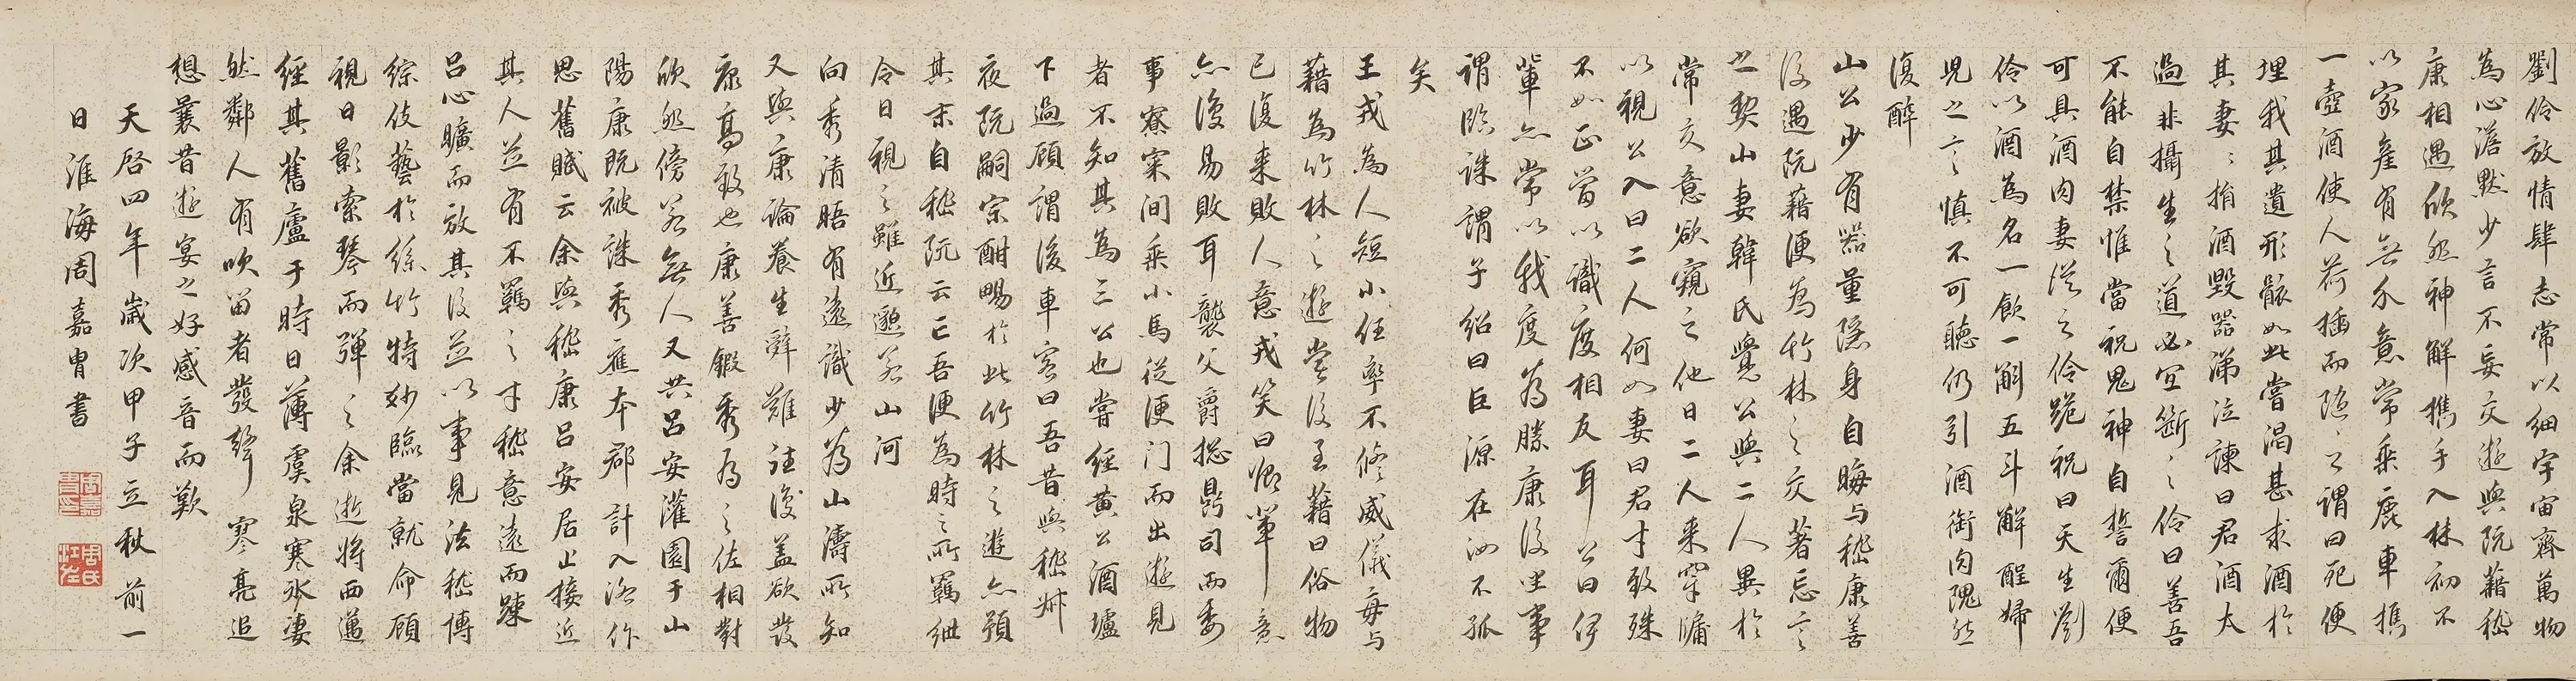 劉伶放情肆志常以細宇宙齊萬物
為心澹默少言不妄交遊與阮藉嵇
康相遇欣然神解攜手入林初不
以家產有無介意常乘鹿車攜
一壺酒使人荷插而隨之謂曰死便
埋我其遺形骸如此嘗渴甚求酒於
其妻〻捐酒毀器涕泣諫曰君酒太
過非攝生之道必宜斷之伶曰善吾
不能自禁惟當祝鬼神自誓爾便
可具酒肉妻從之伶跪祝曰天生劉
伶以酒為名一飲一斛五斗解酲婦
兒之言慎不可聽仍引酒銜肉隗然
復醉
山公少有器量隱身自晦与嵇康善
後遇阮藉便為竹林之交著忘言
之契山妻韓氏覺公與二人異於
常交意欲窺之他日二人來穿牖
以視公入曰二人何如妻曰君才致殊
不如正當以識度相友耳公曰伊
輩亦常以我度為勝康後坐事
謂臨誅謂子紹曰巨源在汝不孤
矣
王戎為人短小任率不修威儀每与
藉為竹林之遊嘗後至藉曰俗物
已復來敗人意戎笑曰卿輩意
亦復易敗耳襲父爵摠鼎司而委
事寮寀间乘小馬從便门而出遊見
者不知其為三公也嘗經黃公酒壚
下過顧謂後車客曰吾昔與嵇叔
夜阮嗣宗酣暢於此竹林之遊亦預
其末自嵇阮云亡吾便為時之所羈紲
今日視之雖近邈若山河
向秀清晤有遠識少為山濤所知
又與康論養生辭難往復盖欲發
康高致也康善鍛秀為之佐相對
欣然傍若無人又共呂安灌園于山
陽康既被誅秀應本郡計入洛作
思舊賦云余與嵇康呂安居止接近
其人並有不羈之才嵇意遠而疎
呂心曠而放其後並以事見法嵇博
綜伎藝於絲竹特妙臨當就命顧
視日影索琴而彈之余逝將西邁
經其舊廬于時日薄虞泉寒冰淒
然鄰人有吹笛者發聲寥亮追
想曩昔遊宴之好感音而歎
天啓四年歲次甲子立秋前一
日淮海周嘉胄書
周嘉胄印
周氏江左